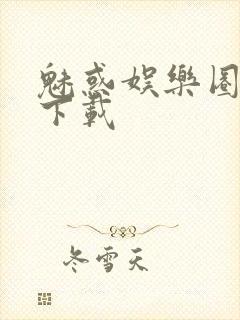 魅惑娛樂圈
下載
冬雪天